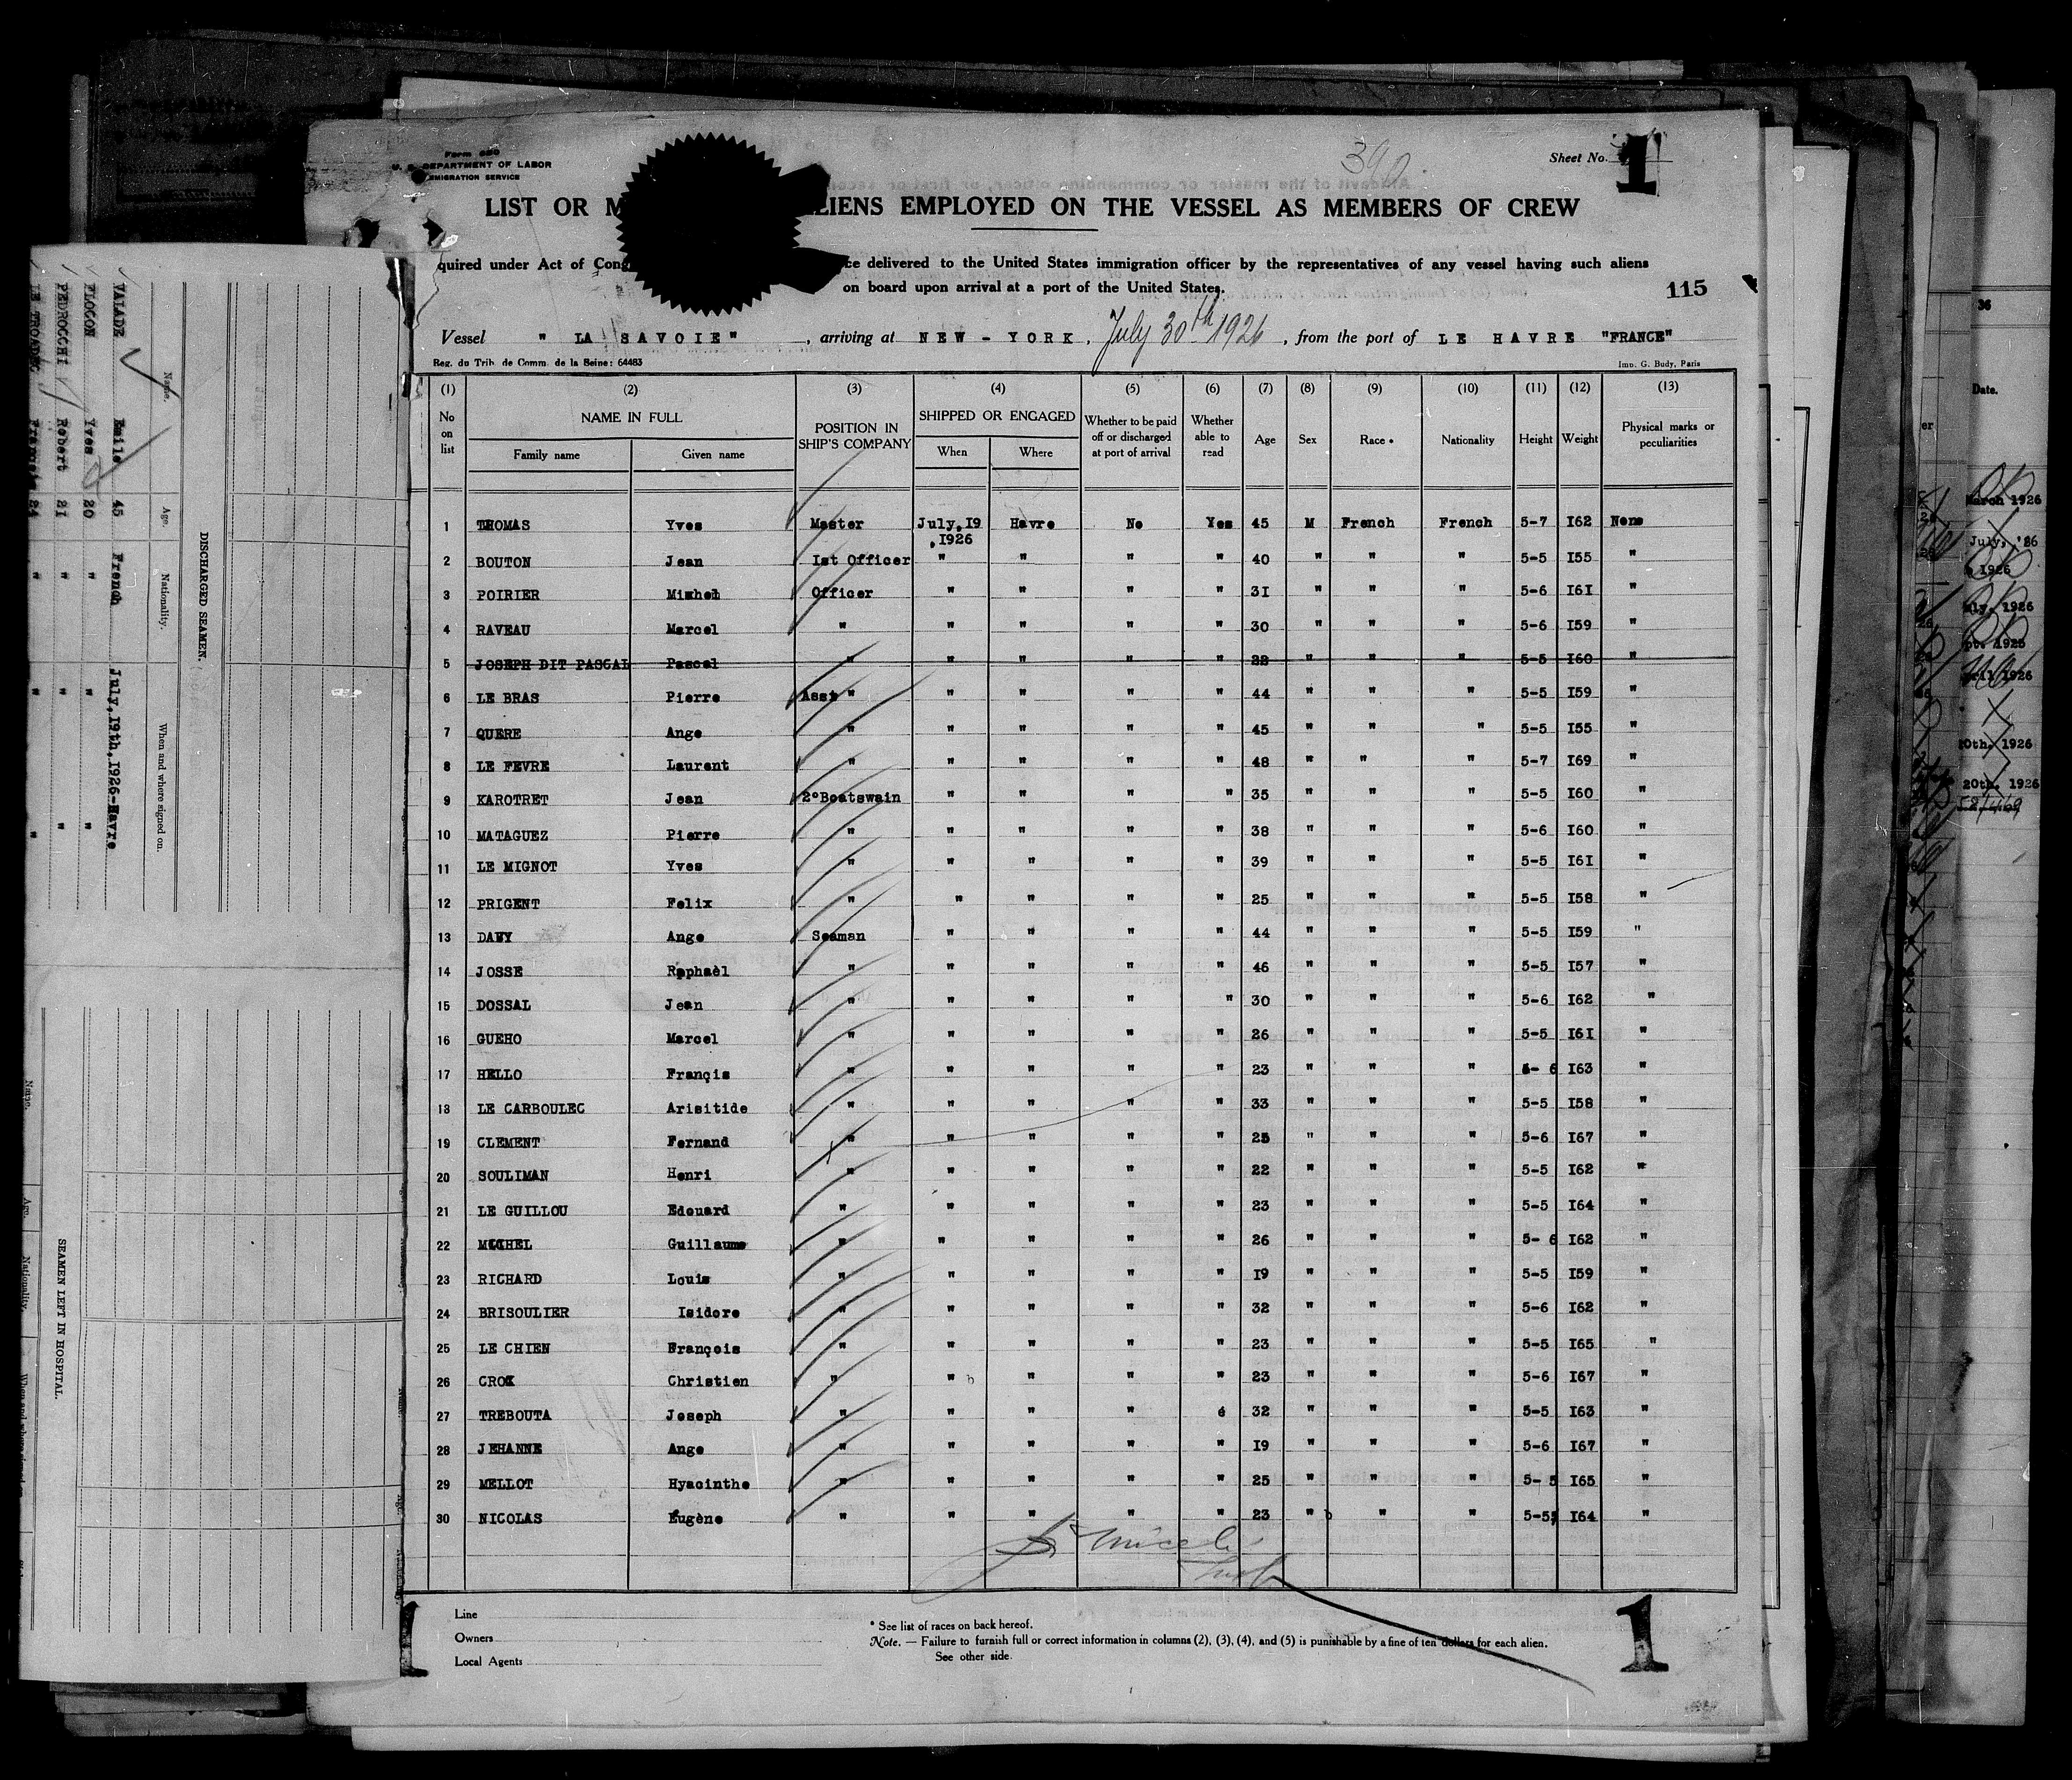 Form 680
U. S. DEPARTMENT OF LABOR
IMMIGRATION SERVICE
390
Sheet No. 1
LIST OR M LIENS EMPLOYED ON THE VESSEL AS MEMBERS OF CREW
quired under Act of Cong ce delivered to the United States immigration officer by the representatives of any vessel having such aliens
on board upon arrival at a port of the United States.
115
Vessel " LA SAVOIE " , arriving at NEW - YORK , July 30th 1926 , from the port of LE HAVRE "FRANCE"
Reg. du Trib. de Comm. de la Seine: 64483
Imp. G. Budy, Paris
(1) (2) (3) (4) (5) (6) (7) (8) (9) (10) (11) (12) (13)
No on list NAME IN FULL Family name Given name POSITION IN SHIP'S COMPANY SHIPPED OR ENGAGED When Where Whether to be paid off or discharged at port of arrival Whether able to read Age Sex Race * Nationality Height Weight Physical marks or peculiarities
1 THOMAS Yves Master July,I9 ,I926 Havre No Yes 45 M French French 5-7 I62 None
2 BOUTON Jean Ist Officer " " " " 40 " " " 5-5 I55 "
3 POIRIER Michel Officer " " " " 3I " " " 5-6 I6I "
4 RAVEAU Marcel " " " " " 30 " " " 5-6 I59 "
5 JOSEPH DIT PASCAL Pascal " " " " " 22 " " " 5-5 I60 "
6 LE BRAS Pierre Asst " " " " " 44 " " " 5-5 I59 "
7 QUERE Ange " " " " " 45 " " " 5-5 I55 "
8 LE FEVRE Laurent " " " " " 48 " " " 5-7 I69 "
9 KAROTRET Jean 2°Boatswain " " " " 35 " " " 5-5 I60 "
10 MATAGUEZ Pierre " " " " " 38 " " " 5-6 I60 "
11 LE MIGNOT Yves " " " " " 39 " " " 5-5 I6I "
12 PRIGENT Felix " " " " " 25 " " " 5-5 I58 "
13 DAVY Ange Seaman " " " " 44 " " " 5-5 I59 "
14 JOSSE Raphaèl " " " " " 46 " " " 5-5 I57 "
15 DOSSAL Jean " " " " " 30 " " " 5-6 I62 "
16 GUEHO Marcel " " " " " 26 " " " 5-5 I6I "
17 HELLO Françis " " " " " 23 " " " 5- 6 I63 "
18 LE CARBOULEC Arisitide " " " " " 33 " " " 5-5 I58 "
19 CLEMENT Fernand " " " " " 25 " " " 5-6 I67 "
20 SOULIMAN Henri " " " " " 22 " " " 5-5 I62 "
21 LE GUILLOU Edouard " " " " " 23 " " " 5-5 I64 "
22 MICHEL Guillaume " " " " " 26 " " " 5- 6 I62 "
23 RICHARD Louis " " " " " I9 " " " 5-5 I59 "
24 BRISOULIER Isidore " " " " " 32 " " " 5-6 I62 "
25 LE CHIEN François " " " " " 23 " " " 5-5 I65 "
26 CROX Christien " " " " " 23 " " " 5-6 I67 "
27 TREBOUTA Joseph " " " " 6 32 " " " 5-5 I63 "
28 JEHANNE Ange " " " " " I9 " " " 5-6 I67 "
29 MELLOT Hyacinthe " " " " " 25 " " " 5- 5 I65 "
30 NICOLAS Eugène " " " " " 23 " " " 5-5 I64 "
Line
Owners
Local Agents
* See list of races on back hereof.
Note. — Failure to furnish full or correct information in columns (2), (3), (4), and (5) is punishable by a fine of ten dollars for each alien.
See other side.
1
1
DISCHARGED SEAMEN.
Name. Age. Nationality. When and where signed on.
VALADE Emile 45 French July,I9th,I926-Havre
FLOCON Yves 20 " " "
PEDROCCHI Robert 21 " " "
LE TROADEC François 24 " " "
SEAMEN LEFT IN HOSPITAL.
Name. Age. Nationality. When and where signed on.
36
Date.
er
March 1926
July, '26
1926
uly, 1926
pt. 1925
pril 1926
20th, 1926